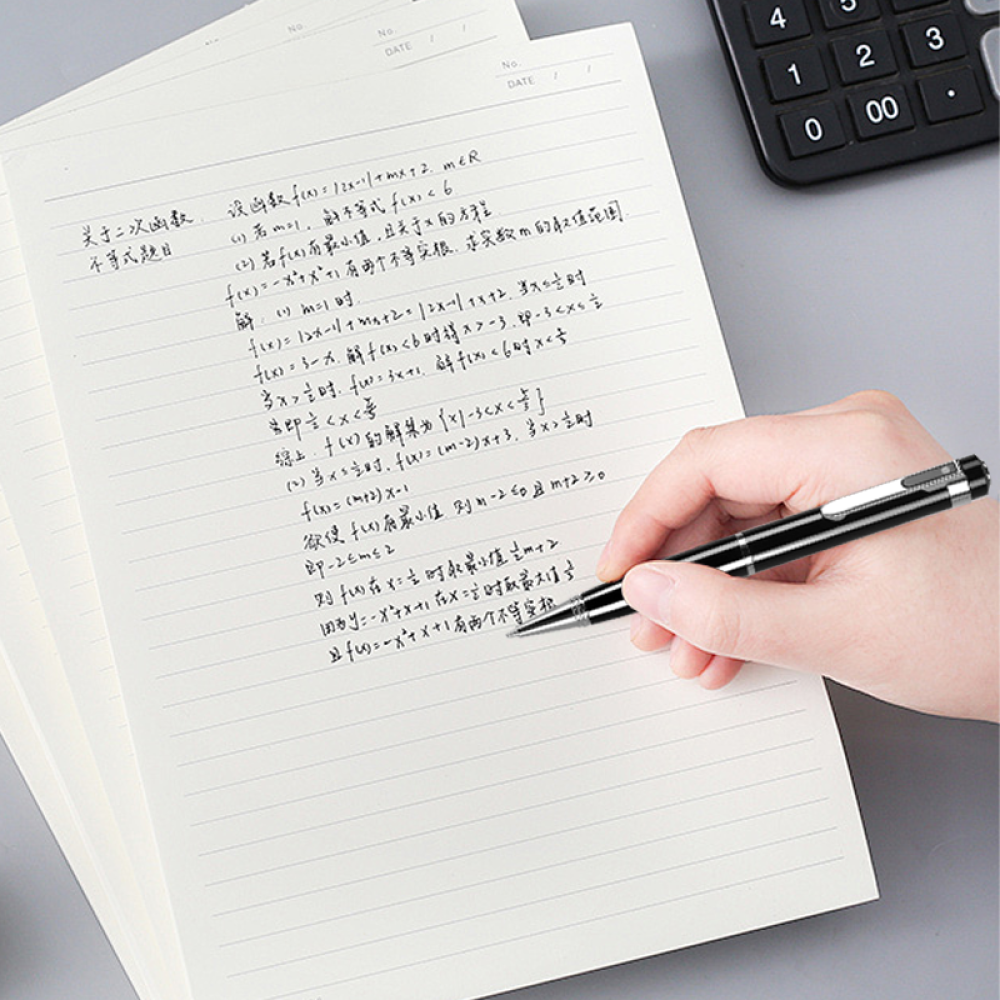 No.
No.
DATE / /
No.
DATE / /
4 5
1 2 3
0 00 ·
关于二次函数
不等式题目
设函数f(x)=|2x-1|+mx+2. m∈R
(1) 若m=1, 解不等式 f(x)<6
(2) 若f(x)有最小值,且关于x的方程
f(x)=-x²+x²+1有两个不等实根,求实数m的取值范围.
解: (1) m=1时.
f(x)=|2x-1|+mx+2=|2x-1|+x+2. 当x≤½时
f(x)=3-x. 解f(x)<6时得x>-3. 即-3<x≤½
当x>½时. f(x)=3x+1. 解f(x)<6时x<5/3
即½<x<5/3
综上. f(x)的解集为{x|-3<x<5/3}
(2) 当x≤½时. f(x)=(m-2)x+3. 当x>½时
f(x)=(m+2)x-1
欲使f(x)有最小值 则m-2≤0且m+2≥0
即-2≤m≤2
则f(x)在x=½时取最小值½m+2
因为y=-x²+x+1在x=½时取最大值
且f(x)=-x²+x+1有两个不等实根